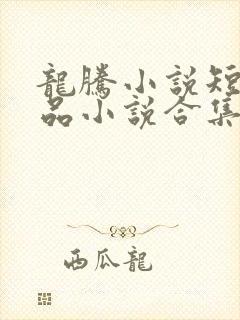 龍騰小說短
品小說合集
西瓜龍